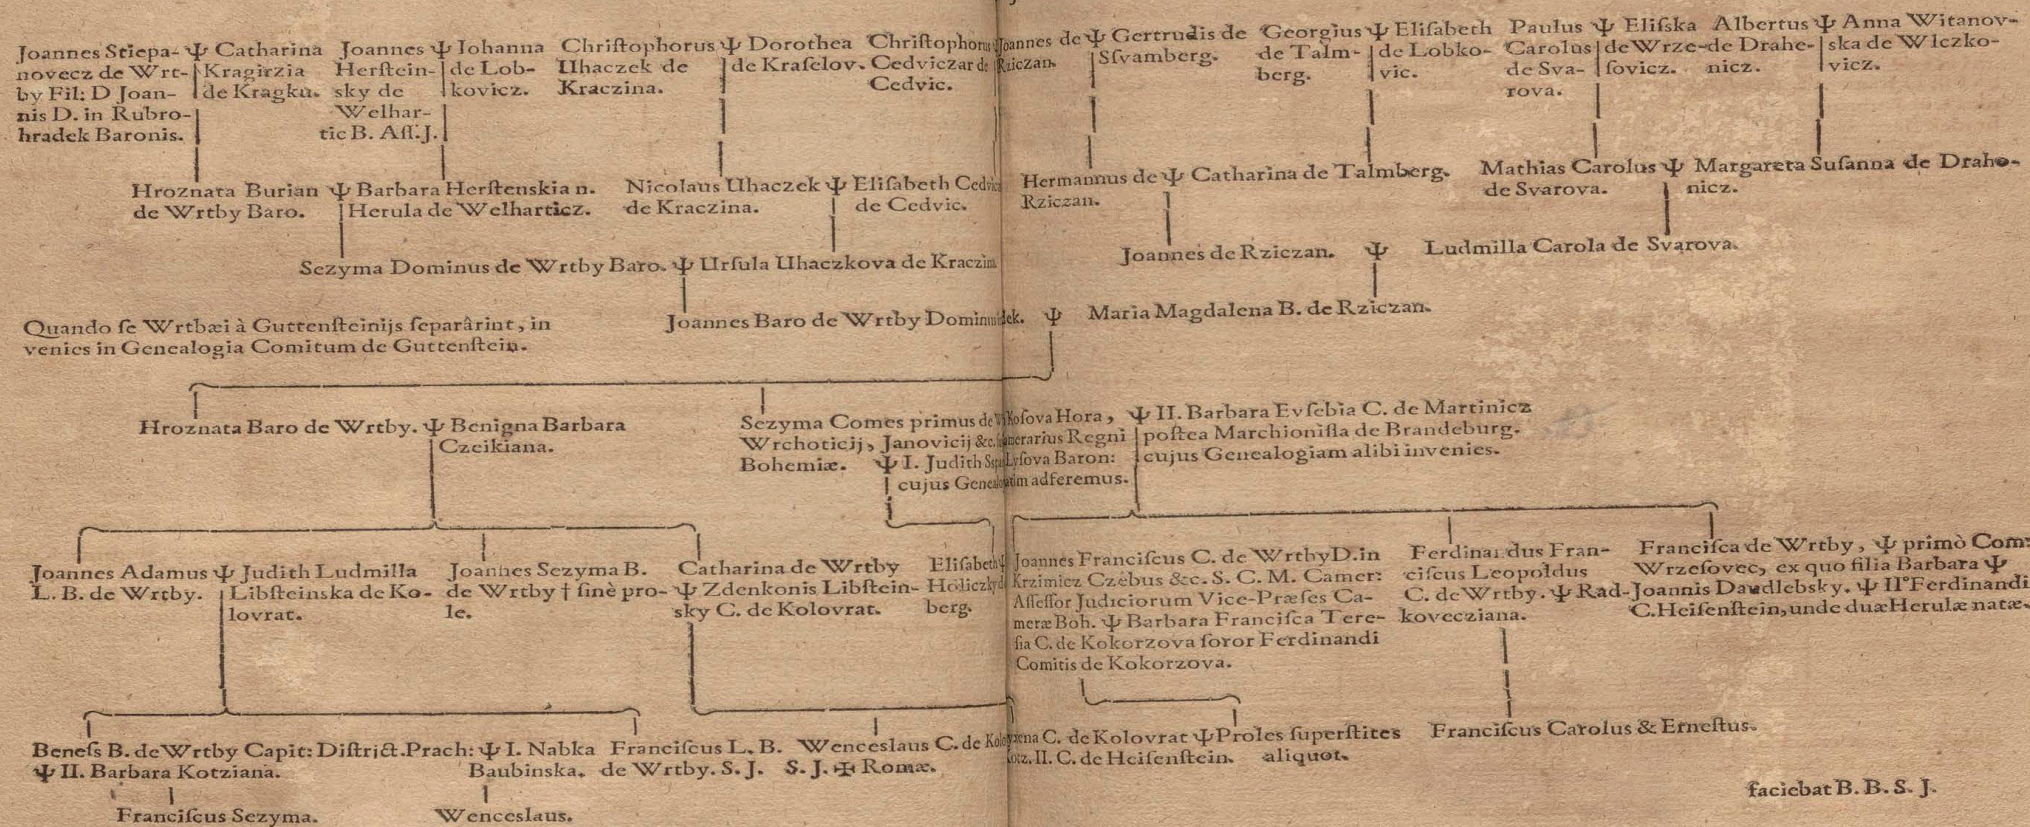 Joannes Stiepa-
novecz de Wrt-
by Fil: D Joan-
nis D. in Rubro-
hradek Baronis.
Ψ Catharina
Kragirzia
de Kragku.
Joannes
Herſtein-
sky de
Welhar-
tic B. Aſſ. J.
Ψ Iohanna
de Lob-
kovicz.
Chriſtophorus
Uhaczek de
Kraczina.
Ψ Dorothea
de Kraſelov.
Chriſtophorus
Cedviczar de
Cedvic.
Joannes de
Rziczan.
Ψ Gertrudis de
Sſvamberg.
Georgius
de Talm-
berg.
Ψ Eliſabeth
de Lobko-
vic.
Paulus
Carolus
de Sva-
rova.
Ψ Eliſska
de Wrze-
ſovicz.
Albertus
de Drahe-
nicz.
Ψ Anna Witanov-
ska de Wlczko-
vicz.
Hroznata Burian
de Wrtby Baro.
Ψ Barbara Herſtenskian.
Herula de Welharticz.
Nicolaus Uhaczek
de Kraczina.
Ψ Eliſabeth
de Cedvic.
Hermannus de
Rziczan.
Ψ Catharina de Talmberg.
Mathias Carolus
de Svarova.
Ψ Margareta Suſanna de Draho-
nicz.
Sezyma Dominus de Wrtby Baro. Ψ Urſula Uhaczkova de
Joannes de Rziczan. Ψ Ludmilla Carola de Svarova.
Joannes Baro de Wrtby Ψ Maria Magdalena B. de Rziczan.
Quando ſe Wrtbæi à Guttenſteinijs ſeparârint, in
venies in Genealogia Comitum de Guttenſtein.
Hroznata Baro de Wrtby. Ψ Benigna Barbara
Czeikiana.
Sezyma Comes primus de Hora,
Wrchoticij, Janovicij &c. Regni
Bohemiæ. Ψ I. Judith Baron:
cujus adferemus.
Ψ II. Barbara Evſebia C. de Martinicz
poſtea Marchioniſſa de Brandeburg.
cujus Genealogiam alibi invenies.
Joannes Adamus
L. B. de Wrtby.
Ψ Judith Ludmilla
Libſteinska de Ko-
lovrat.
Joannes Sezyma B.
de Wrtby † ſinè pro-
le.
Catharina de Wrtby
Ψ Zdenkonis Libſtein-
sky C. de Kolovrat.
Eliſabeth
berg.
Joannes Franciſcus C. de Wrtby D. in
Krzimicz Czèbus &c. S. C. M. Camer:
Aſſeſſor Judiciorum Vice-Præſes Ca-
meræ Boh. Ψ Barbara Franciſca Tere-
ſia C. de Kokorzova ſoror Ferdinandi
Comitis de Kokorzova.
Ferdinandus Fran-
ciſcus Leopoldus
C. de Wrtby. Ψ Rad-
kovecziana.
Franciſca de Wrtby, Ψ primò Com:
Wrzeſovec, ex quo filia Barbara Ψ
Joannis Daudlebsky. Ψ II° Ferdinandi
C. Heiſenſtein, unde duæ Herulæ natæ.
Beneſs B. de Wrtby Capit: Diſtrict. Prach: Ψ I. Nabka
Ψ II. Barbara Kotziana. Baubinska.
Franciſcus L. B.
de Wrtby. S. J.
Wenceslaus C. de
S. J. ✠ Romæ.
C. de Kolovrat Ψ
II. C. de Heiſenſtein.
Proles ſuperſtites
aliquot.
Franciſcus Carolus & Erneſtus.
Franciſcus Sezyma.
Wenceslaus.
faciebat B. B. S. J.